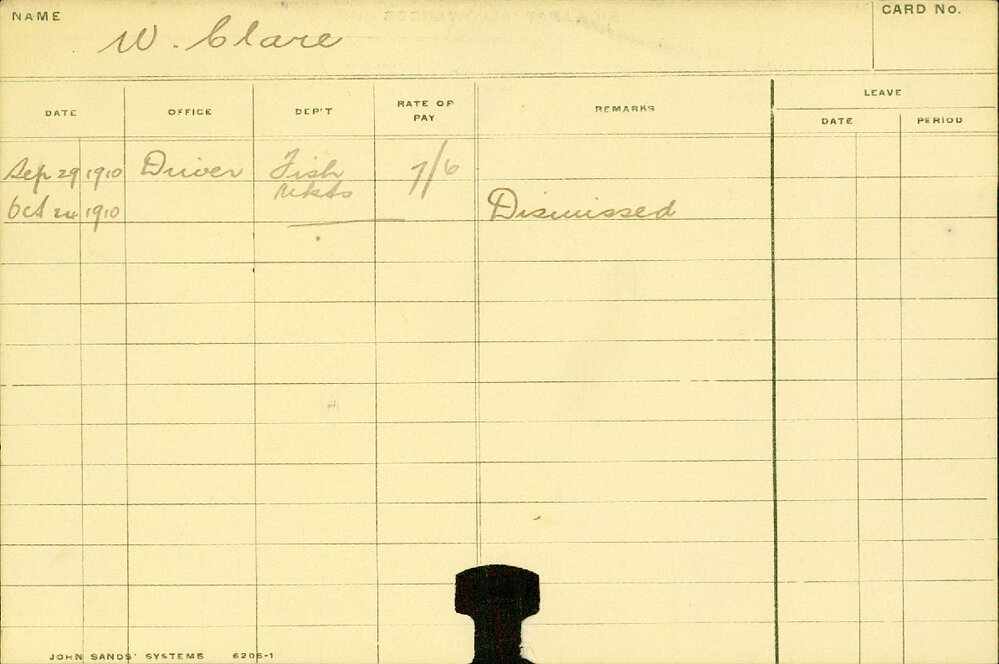 NAME W. Clare CARD No.
DATE OFFICE DEP'T RATE OF PAY REMARKS LEAVE
DATE PERIOD
Sep 29 1910 Driver Fish 7/6
Mkts
Oct 24 1910 Dismissed
JOHN SANDS' SYSTEMS 6206-1